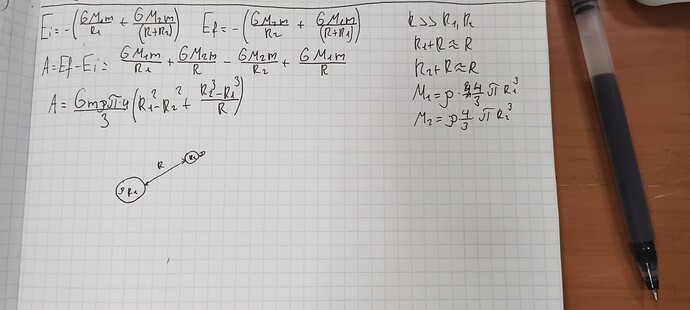 Ei = -(GM₁m/R₁ + GM₂m/(R+R₂)) Ef = -(GM₂m/R₂ + GM₁m/(R+R₁))
A = Ef - Ei = GM₁m/R₁ + GM₂m/R - GM₂m/R₂ + GM₁m/R
A = Gmρπ·4/3 (R₁² - R₂² + (R₂³ - R₁³)/R)
R >> R₁, R₂
R₁ + R ≈ R
R₂ + R ≈ R
M₁ = ρ · 4/3 π R₁³
M₂ = ρ 4/3 π R₂³
R
ρ R₁